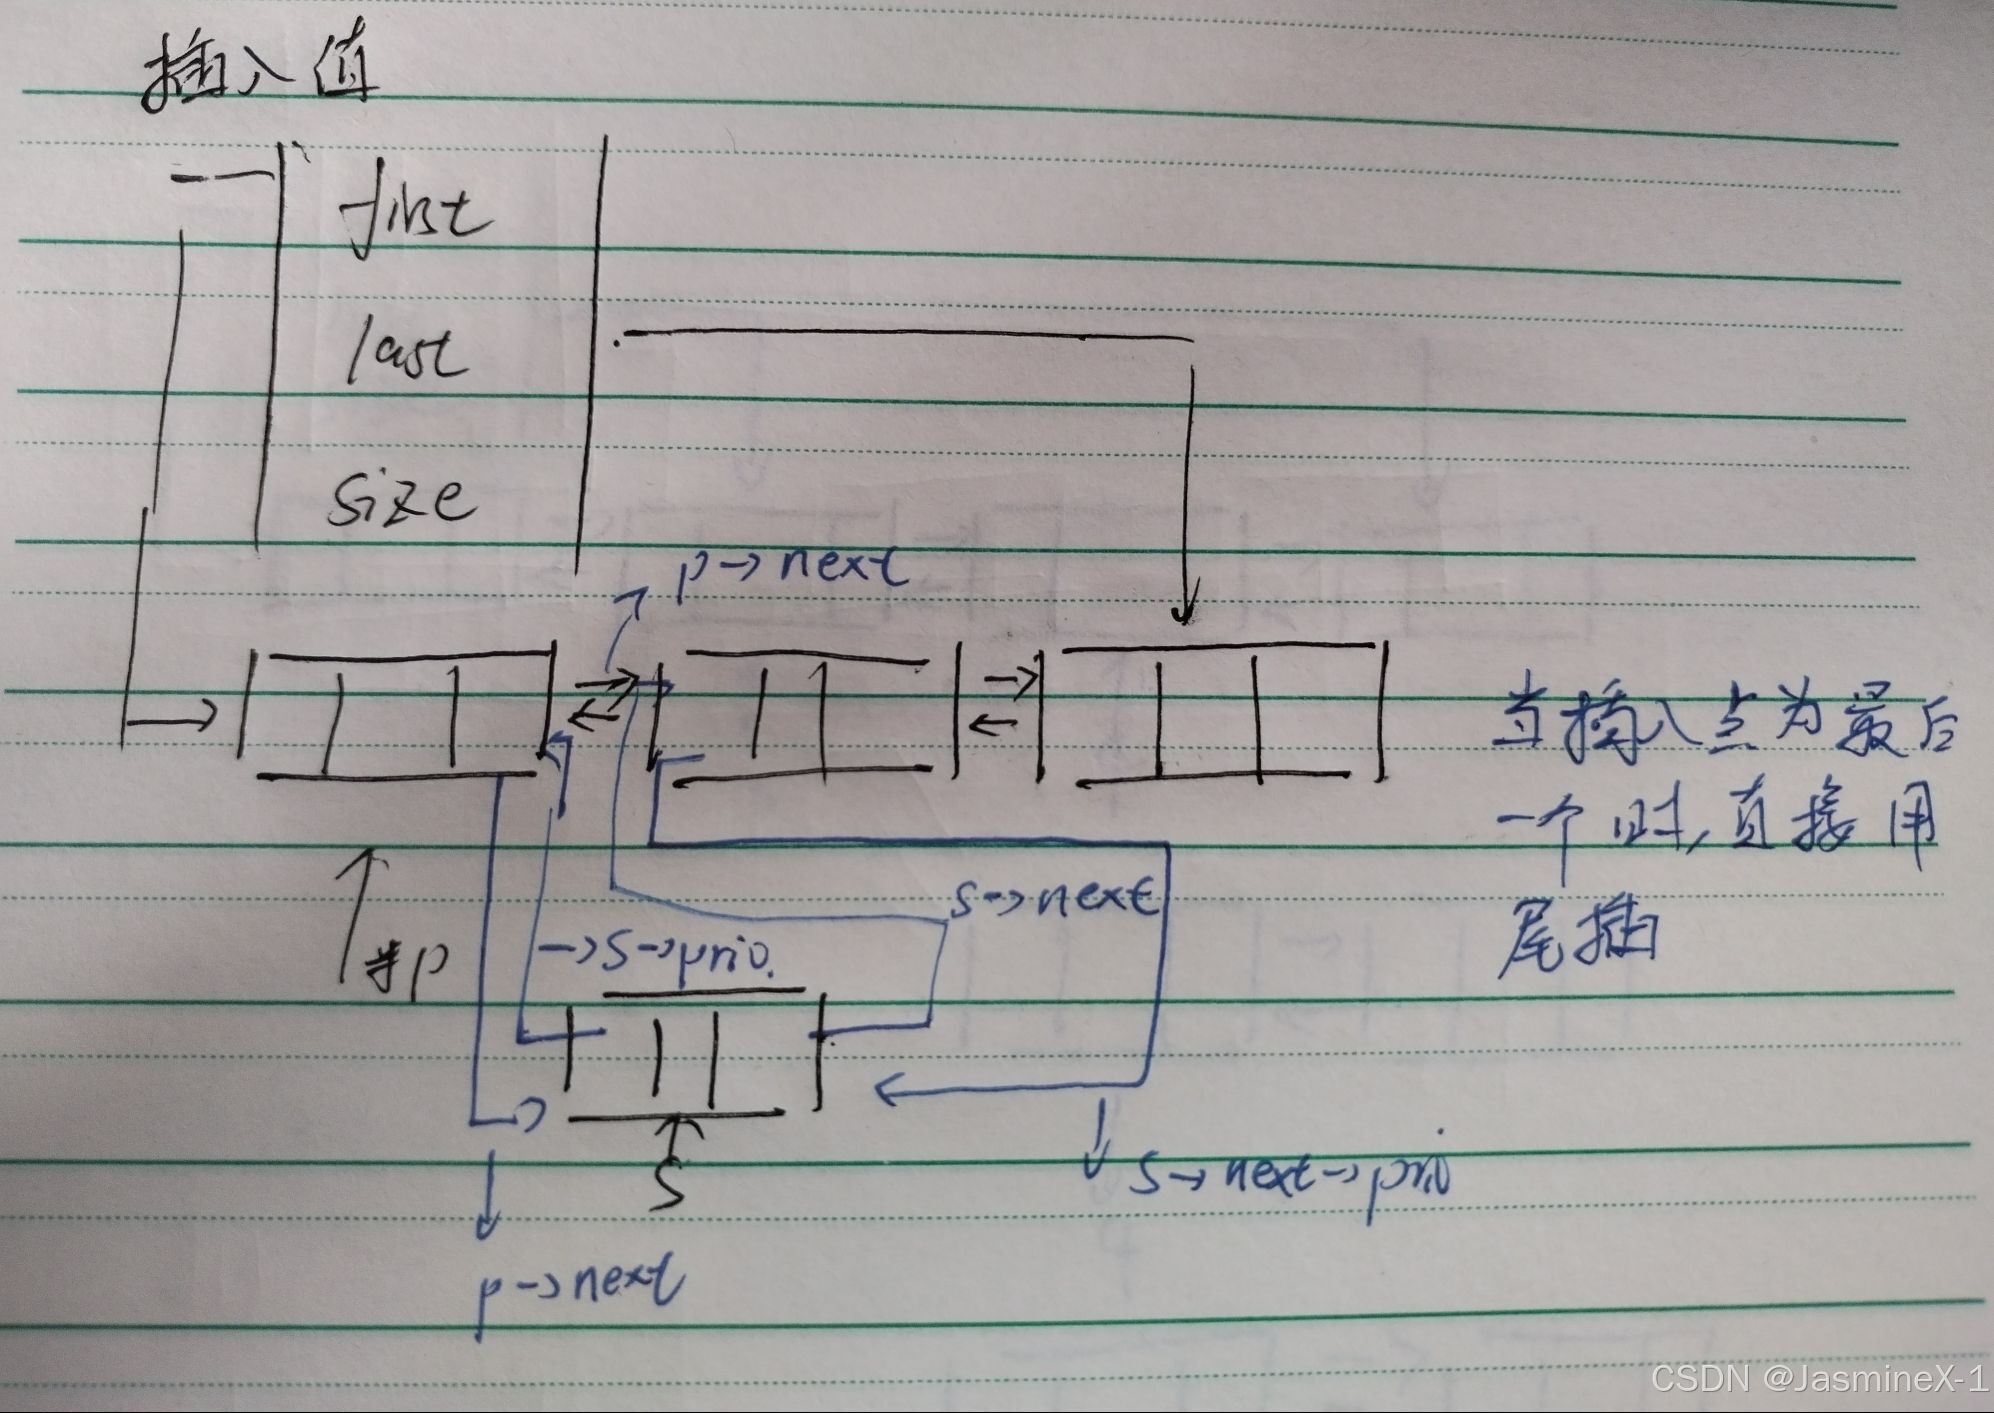 插入值
first
last
size
p→next
当插入点为最后
一个时,直接用
尾插
s→next
→s→prio.
*p
s→next→prio
S
p→next
CSDN @JasmineX-1